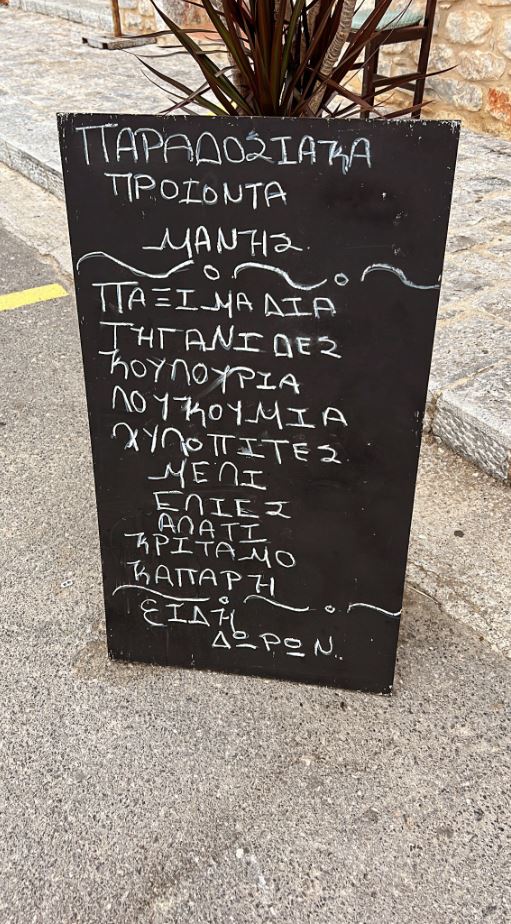 ΠΑΡΑΔΟΣΙΑΚΑ
ΠΡΟΙΟΝΤΑ
ΜΑΝΗΣ
ΠΑΞΙΜΑΔΙΑ
ΤΗΓΑΝΙΔΕΣ
ΚΟΥΛΟΥΡΙΑ
ΛΟΥΚΟΥΜΙΑ
ΧΥΛΟΠΙΤΕΣ
ΜΕΛΙ
ΕΛΙΕΣ
ΑΛΑΤΙ
ΚΡΙΤΑΜΟ
ΚΑΠΑΡΗ
ΕΙΔΗ
ΔΩΡΩΝ